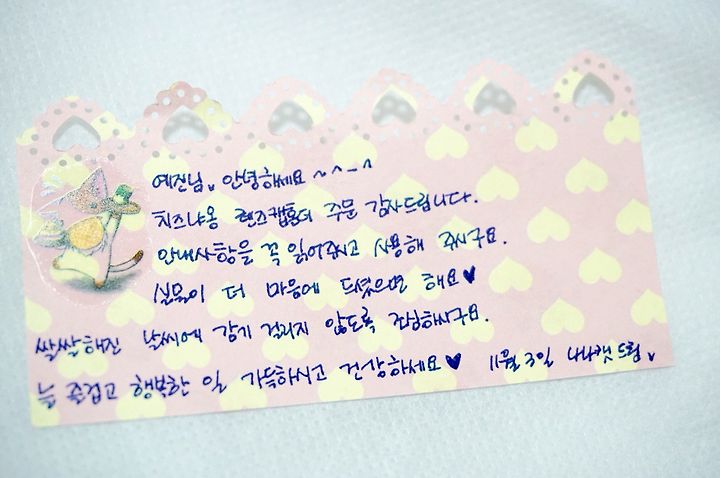 예진님. 안녕하세요 ~^-^
치즈냐옹 렌즈캡홀더 주문 감사드립니다.
안내사항을 꼭 읽어주시고 사용해 주시구요.
실물이 더 마음에 드셨으면 해요♥
쌀쌀해진 날씨에 감기 걸리지 않도록 조심하시구요.
늘 즐겁고 행복한 일 가득하시고 건강하세요♥ 11월 3일 나나캣 드림.